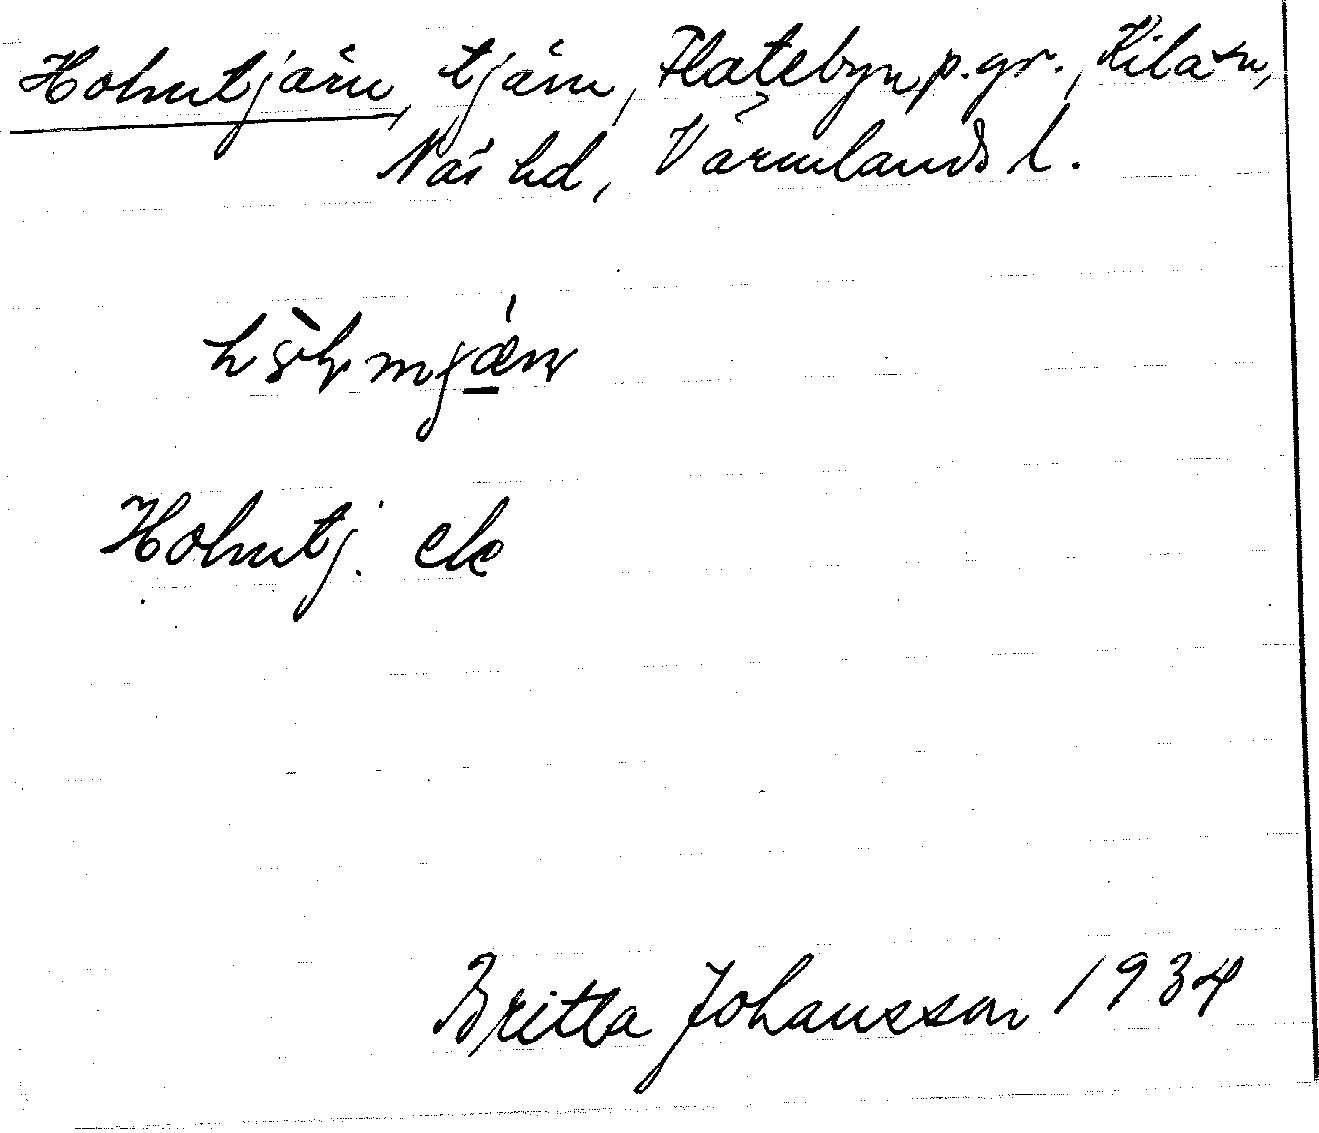 Holmtjärn, tjärn, Flatebyn p.gr., Kila sn,
Näs hd, Värmlands l.
Holmtj. ek
Britta Johansson 1934